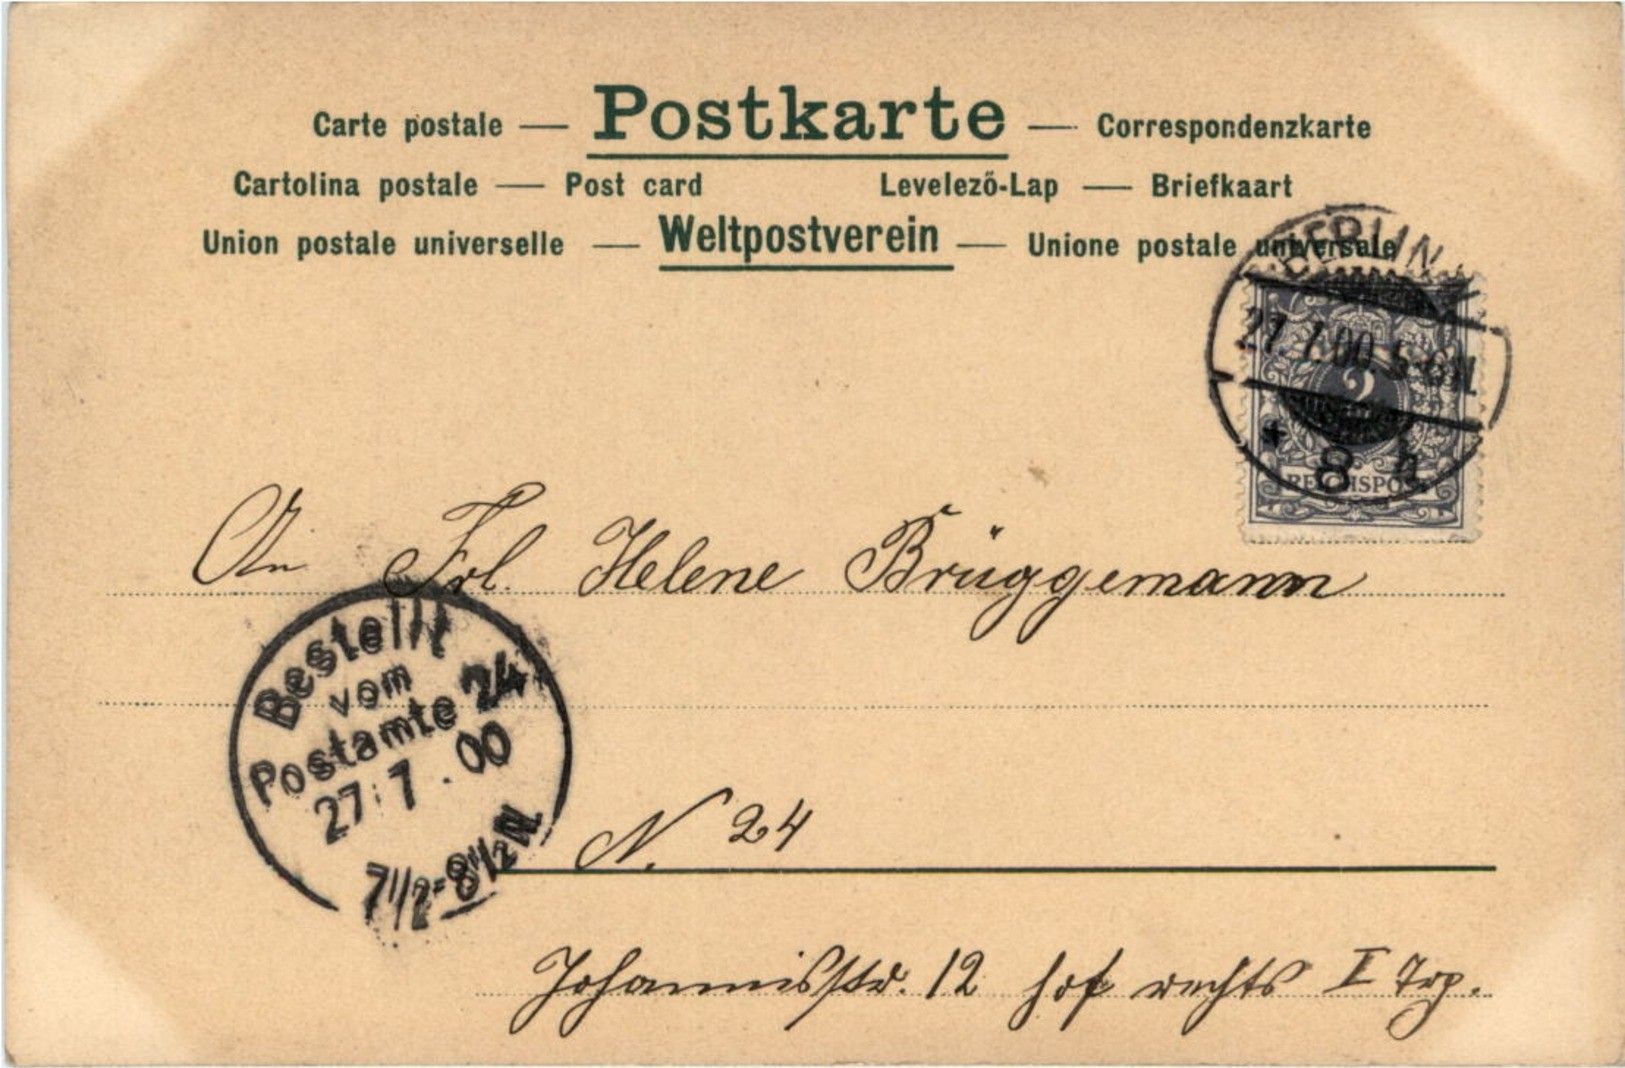 Carte postale — Postkarte — Correspondenzkarte
Cartolina postale — Post card Levelező-Lap — Briefkaart
Union postale universelle — Weltpostverein — Unione postale universale
BERLIN
27.7.00. 5-6N.
* 8 h
2
REICHSPOST
An Frl. Helene Brüggemann
Bestellt
vom
Postamte 24
27.7.00
7 1/2-8 1/2 N
N. 24
Johannisstr. 12 Hof rechts I Trp.